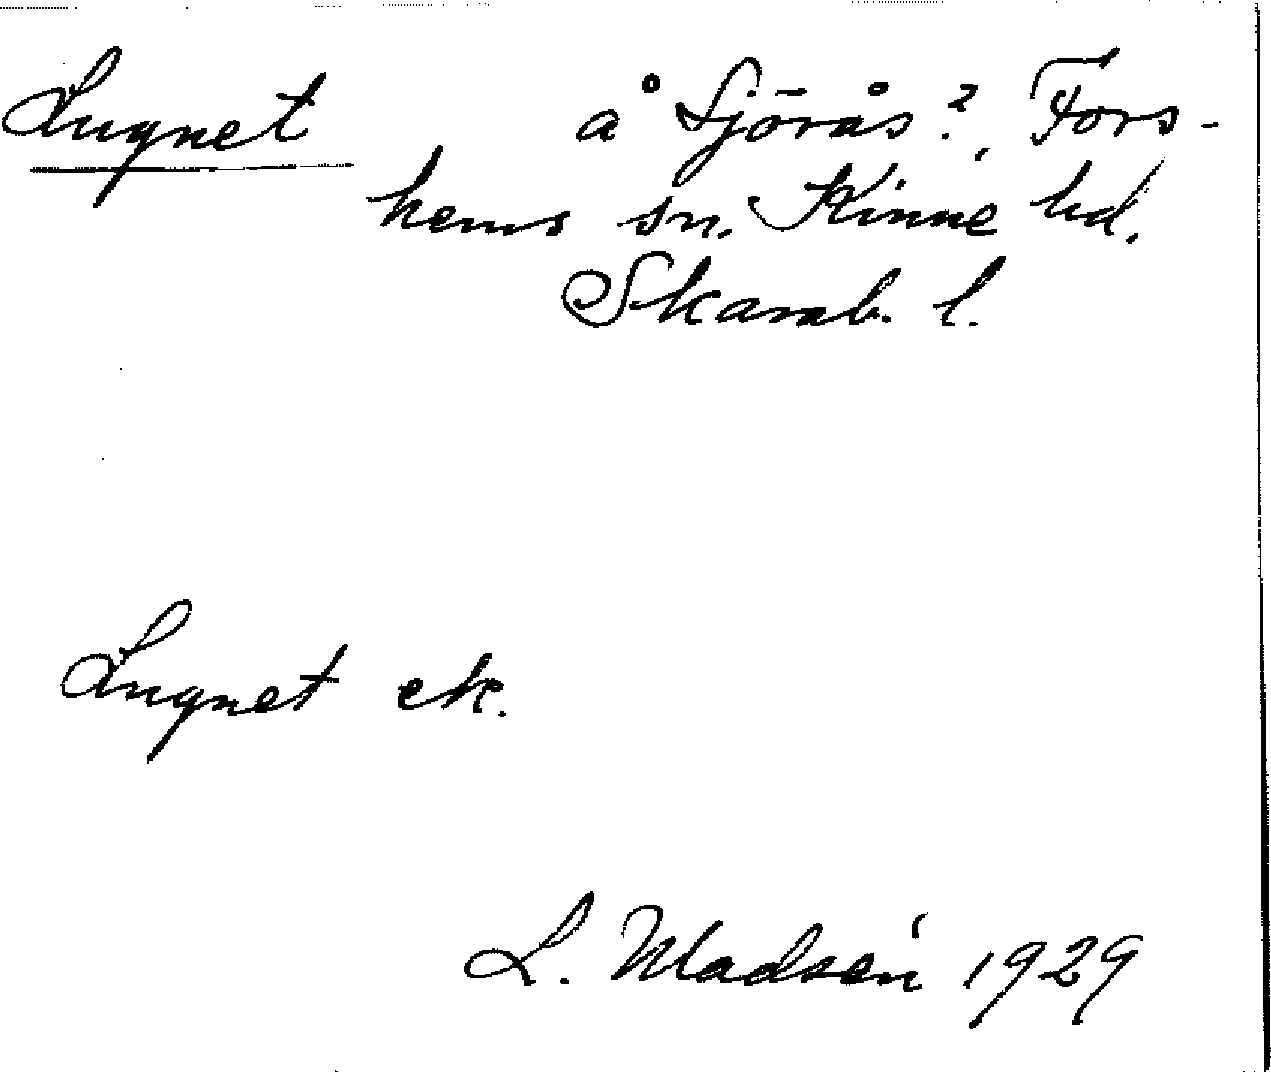 Lugnet å Sjörås?, Fors-
hems sn. Kinne hd.
Skarab. l.
Lugnet ek.
L. Madsén 1929